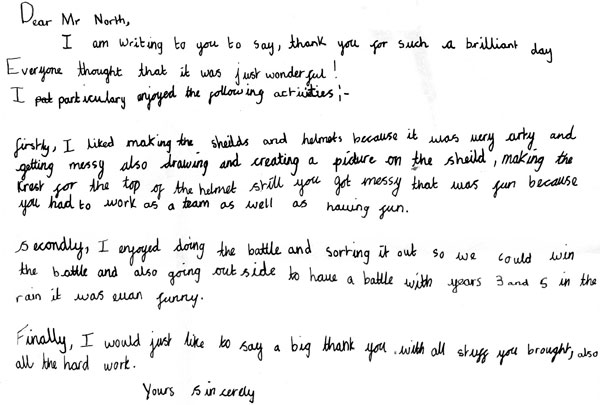 Dear Mr North,
I am writing to you to say, thank you for such a brilliant day
Everyone thought that it was just wonderful!
I pat particulary enjoyed the following activities;-
firstly, I liked making the sheilds and helmets because it was very arty and
getting messy also drawing and creating a picture on the sheild, making the
Krest for the top of the helmet still you got messy that was fun because
you had to work as a team as well as having fun.
secondly, I enjoyed doing the battle and sorting it out so we could win
the battle and also going outside to have a battle with years 3 and 5 in the
rain it was evan funny.
Finally, I would just like to say a big thank you. with all stuff you brought, also
all the hard work.
Yours sincerely